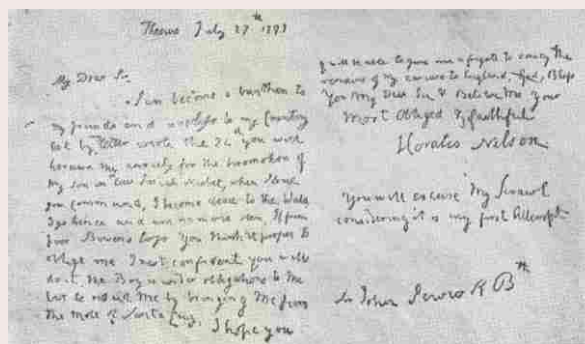 Theseus July 27th 1797
My Dear Sir,
I am become a burthen to
my friends and useless to my Country
but by letter wrote the 24th you will
perceive my anxiety for the promotion of
my son in Law Josiah Nisbet, when I leave
your command, I become dead to the World
I go hence and am no more seen, If from
poor Bowen's loss You think it proper to
oblige me I rest confident you will
do it, the Boy is under obligations to me
but he repaid Me by bringing Me from
the Mole of Santa Cruz, I hope you
will be able to give me a frigate to convey the
remains of my carcase to England, God Bless
You My Dear Sir & Believe Me your
Most Obliged & faithful
Horatio Nelson
You will excuse My Scrawl
considering it is my first Attempt
Sir John Jervis K B